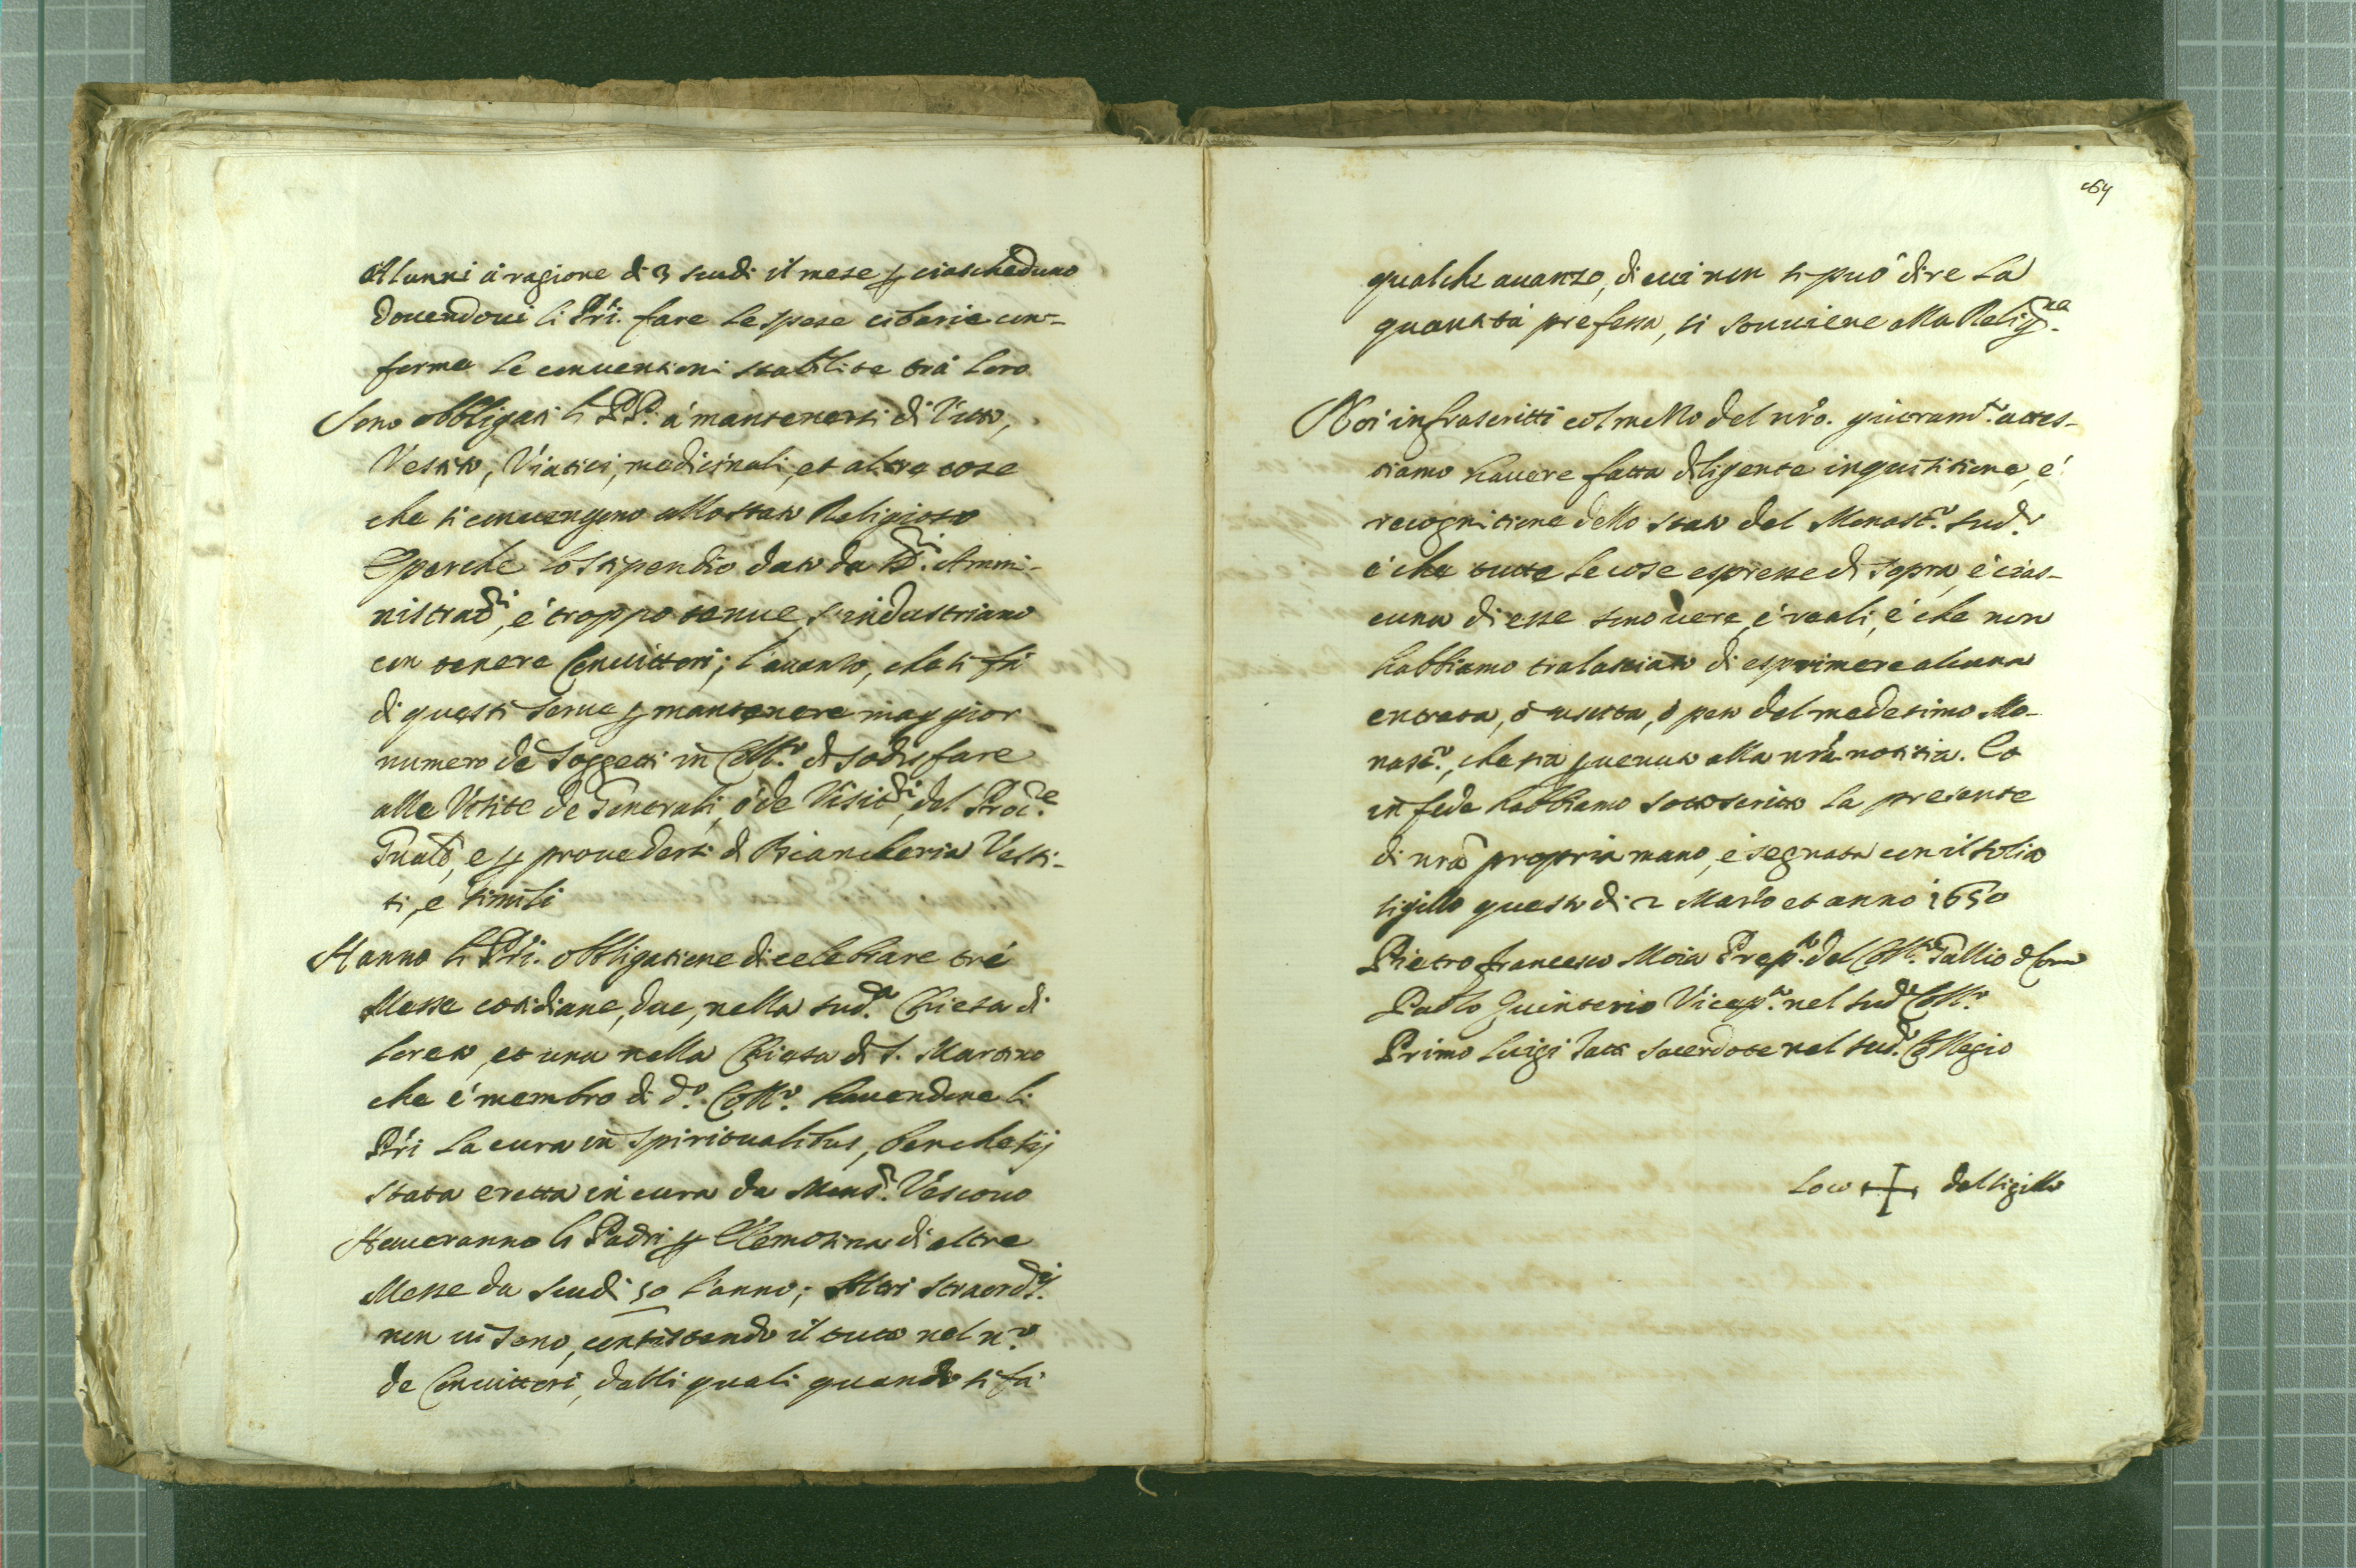 Alunni à ragione di 3 scudi il mese p ciascheduno
douendoui li Pri. fare le spese cibarie con-
forme le conuentioni stabilite trà loro
Sono obbligati li PP. à mantenersi di Vitto,
Vestito, Viatici, medicinali, et altre cose
che si conuengono allo stato Religioso
E perche lo stipendio dato da SS.ri Ammi-
nistrad.ri, è troppo tenue, s'industriano
con tenere Conuittori; l'auanzo, che si fà
di questi serue p mantenere maggior
numero de Soggetti in Coll.o di sodisfare
alle Visite de Generali, ò de Visit.ri, del Proc.re
Gnale, e p prouedersi di Biancheria Vesti-
ti, e simili
Hanno li Pri. obbligatione di celebrare trè
Messe cotidiane, due, nella sud.a Chiesa di
Loreto, et una nella Chiesa di S. Martino
che è membro di d.o Coll.o hauendone li
Pri la cura in spiritualibus, benche sij
stata eretta in cura da Mons.r Vescouo
Haueranno li Padri p Elemosina di altre
Messe da scudi 50 l'anno; Altri straord.ij
non ui sono, consistendo il tutto nel n.o
de Conuittori, dalli quali quando si fà
qualche auanzo, di cui non si può dire la
quantità prefessa, si souuiene alla Relig.ne
Noi infrascritti col mezzo del nro. giuram.to attes-
tiamo hauere fatta diligente inquisitione, é
recognitione dello stato del Monast.o sud.o
é che tutte le cose espresse di sopra, é cias-
cuna di esse sono uere, é reali, é che non
habbiamo tralasciato di esprimere alcuna
entrata, ò uscita, ò peso del medesimo Mo-
nast.o, che sia puenuto alla nrã notitia. Et
in fede habbiamo sottoscritto la presente
di nrã propria mano, e segnata con il solito
sigillo questo di 2 Marzo et anno 1650
Pietro Francesco Moia Prep.to del Coll.o Gallio di Como
Paolo Quinterio Vicep.to nel sud.o Coll.o
Primo Luigi Tatti Sacerdote nel sud.o Collegio
Loco + del sigillo